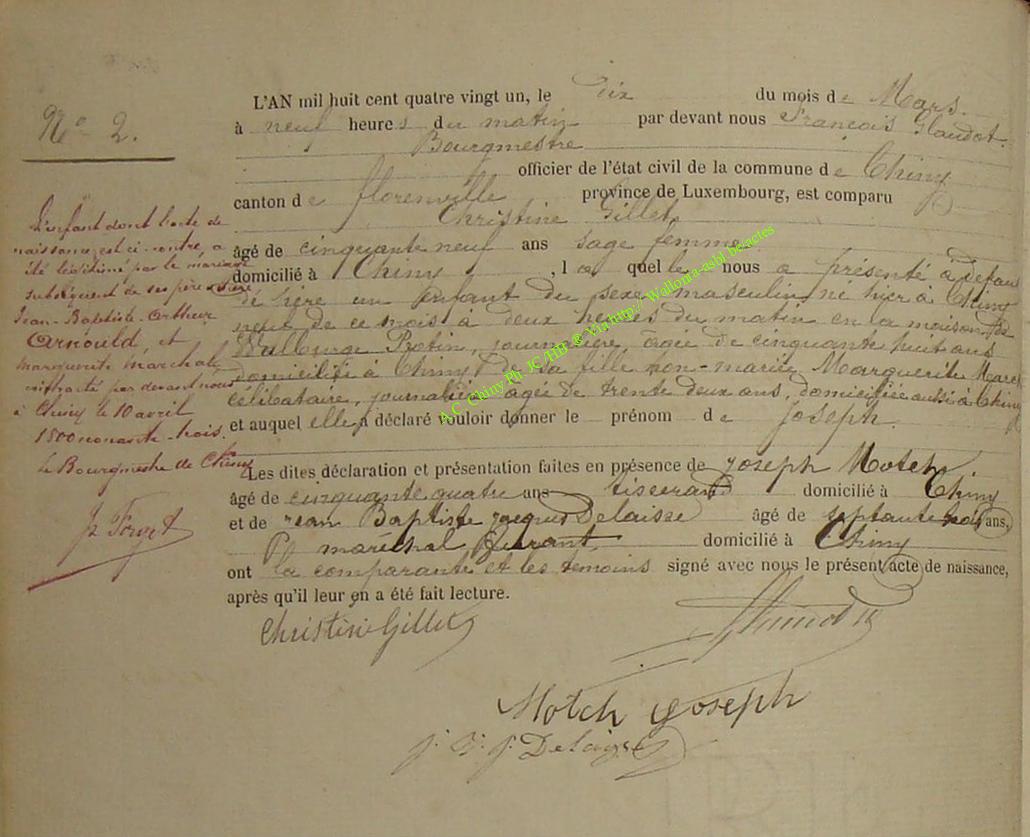 N° 2.
L'enfant dont l'acte de
naissance est ci-contre, a
été légitimé par le mariage
subséquent de ses père et mère
Jean-Baptiste-Arthur
Arnould, et
Marguerite Marchal
contracté par devant nous
à Chiny le 10 avril
1800 nonante-trois.
Le Bourgmestre de Chiny
L'AN mil huit cent quatre vingt un, le dix du mois de Mars.
à neuf heures du matin par devant nous François Glaudot.
Bourgmestre
officier de l'état civil de la commune de Chiny
canton de florenville province de Luxembourg, est comparu
Christine Gillet
âgé de cinquante neuf ans sage femme
domicilié à Chiny, laquelle nous a présenté à défaut
de père un enfant du sexe masculin né hier à Chiny
neuf de ce mois à deux heures du matin en la maison de
Wallburge journalière, âgée de cinquante huit ans
domiciliée à Chiny de la fille non-mariée, Marguerite
célibataire, journalière âgée de trente deux ans, domiciliée aussi à Chiny
et auquel elle a déclaré vouloir donner le prénom de Joseph.
Les dites déclaration et présentation faites en présence de Joseph Motch.
âgé de cinquante quatre ans tisserand domicilié à Chiny
et de Jean Baptiste Jacques Delaisse âgé de septante trois ans,
maréchal ferrant domicilié à Chiny
ont la comparante et les témoins signé avec nous le présent acte de naissance,
après qu'il leur en a été fait lecture.
Christine Gillet
Motch Joseph
J. B. J. Delaisse
A.C. Chiny Ph. JC/HB ® Via http://Wallonia-asbl.be.actes